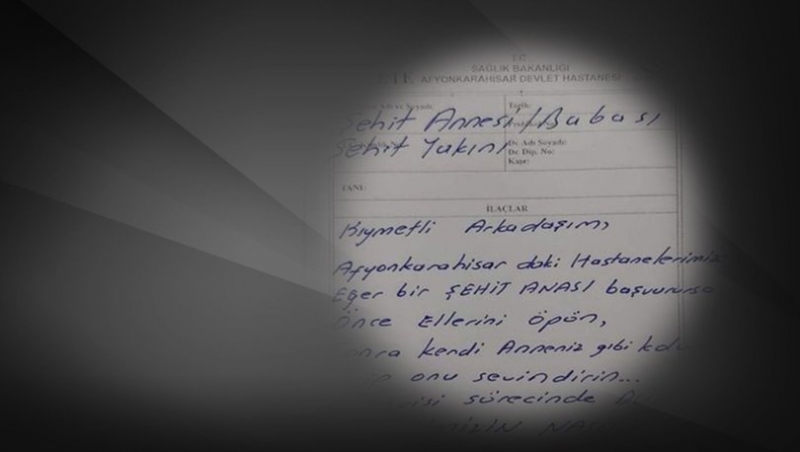 T.C.
SAĞLIK BAKANLIĞI
AFYONKARAHİSAR DEVLET HASTANESİ
Tarih:
Şehit Annesi/Babası
Şehit Yakını
Dr. Adı Soyadı:
Dr. Dip. No:
Kaşe:
TANI:
İLAÇLAR
Kıymetli Arkadaşım,
Afyonkarahisar daki Hastanelerimiz
Eğer bir ŞEHİT ANASI başvurursa
Önce Ellerini öpün,
kendi Anneniz gibi
onu sevindirin...
sürecinde